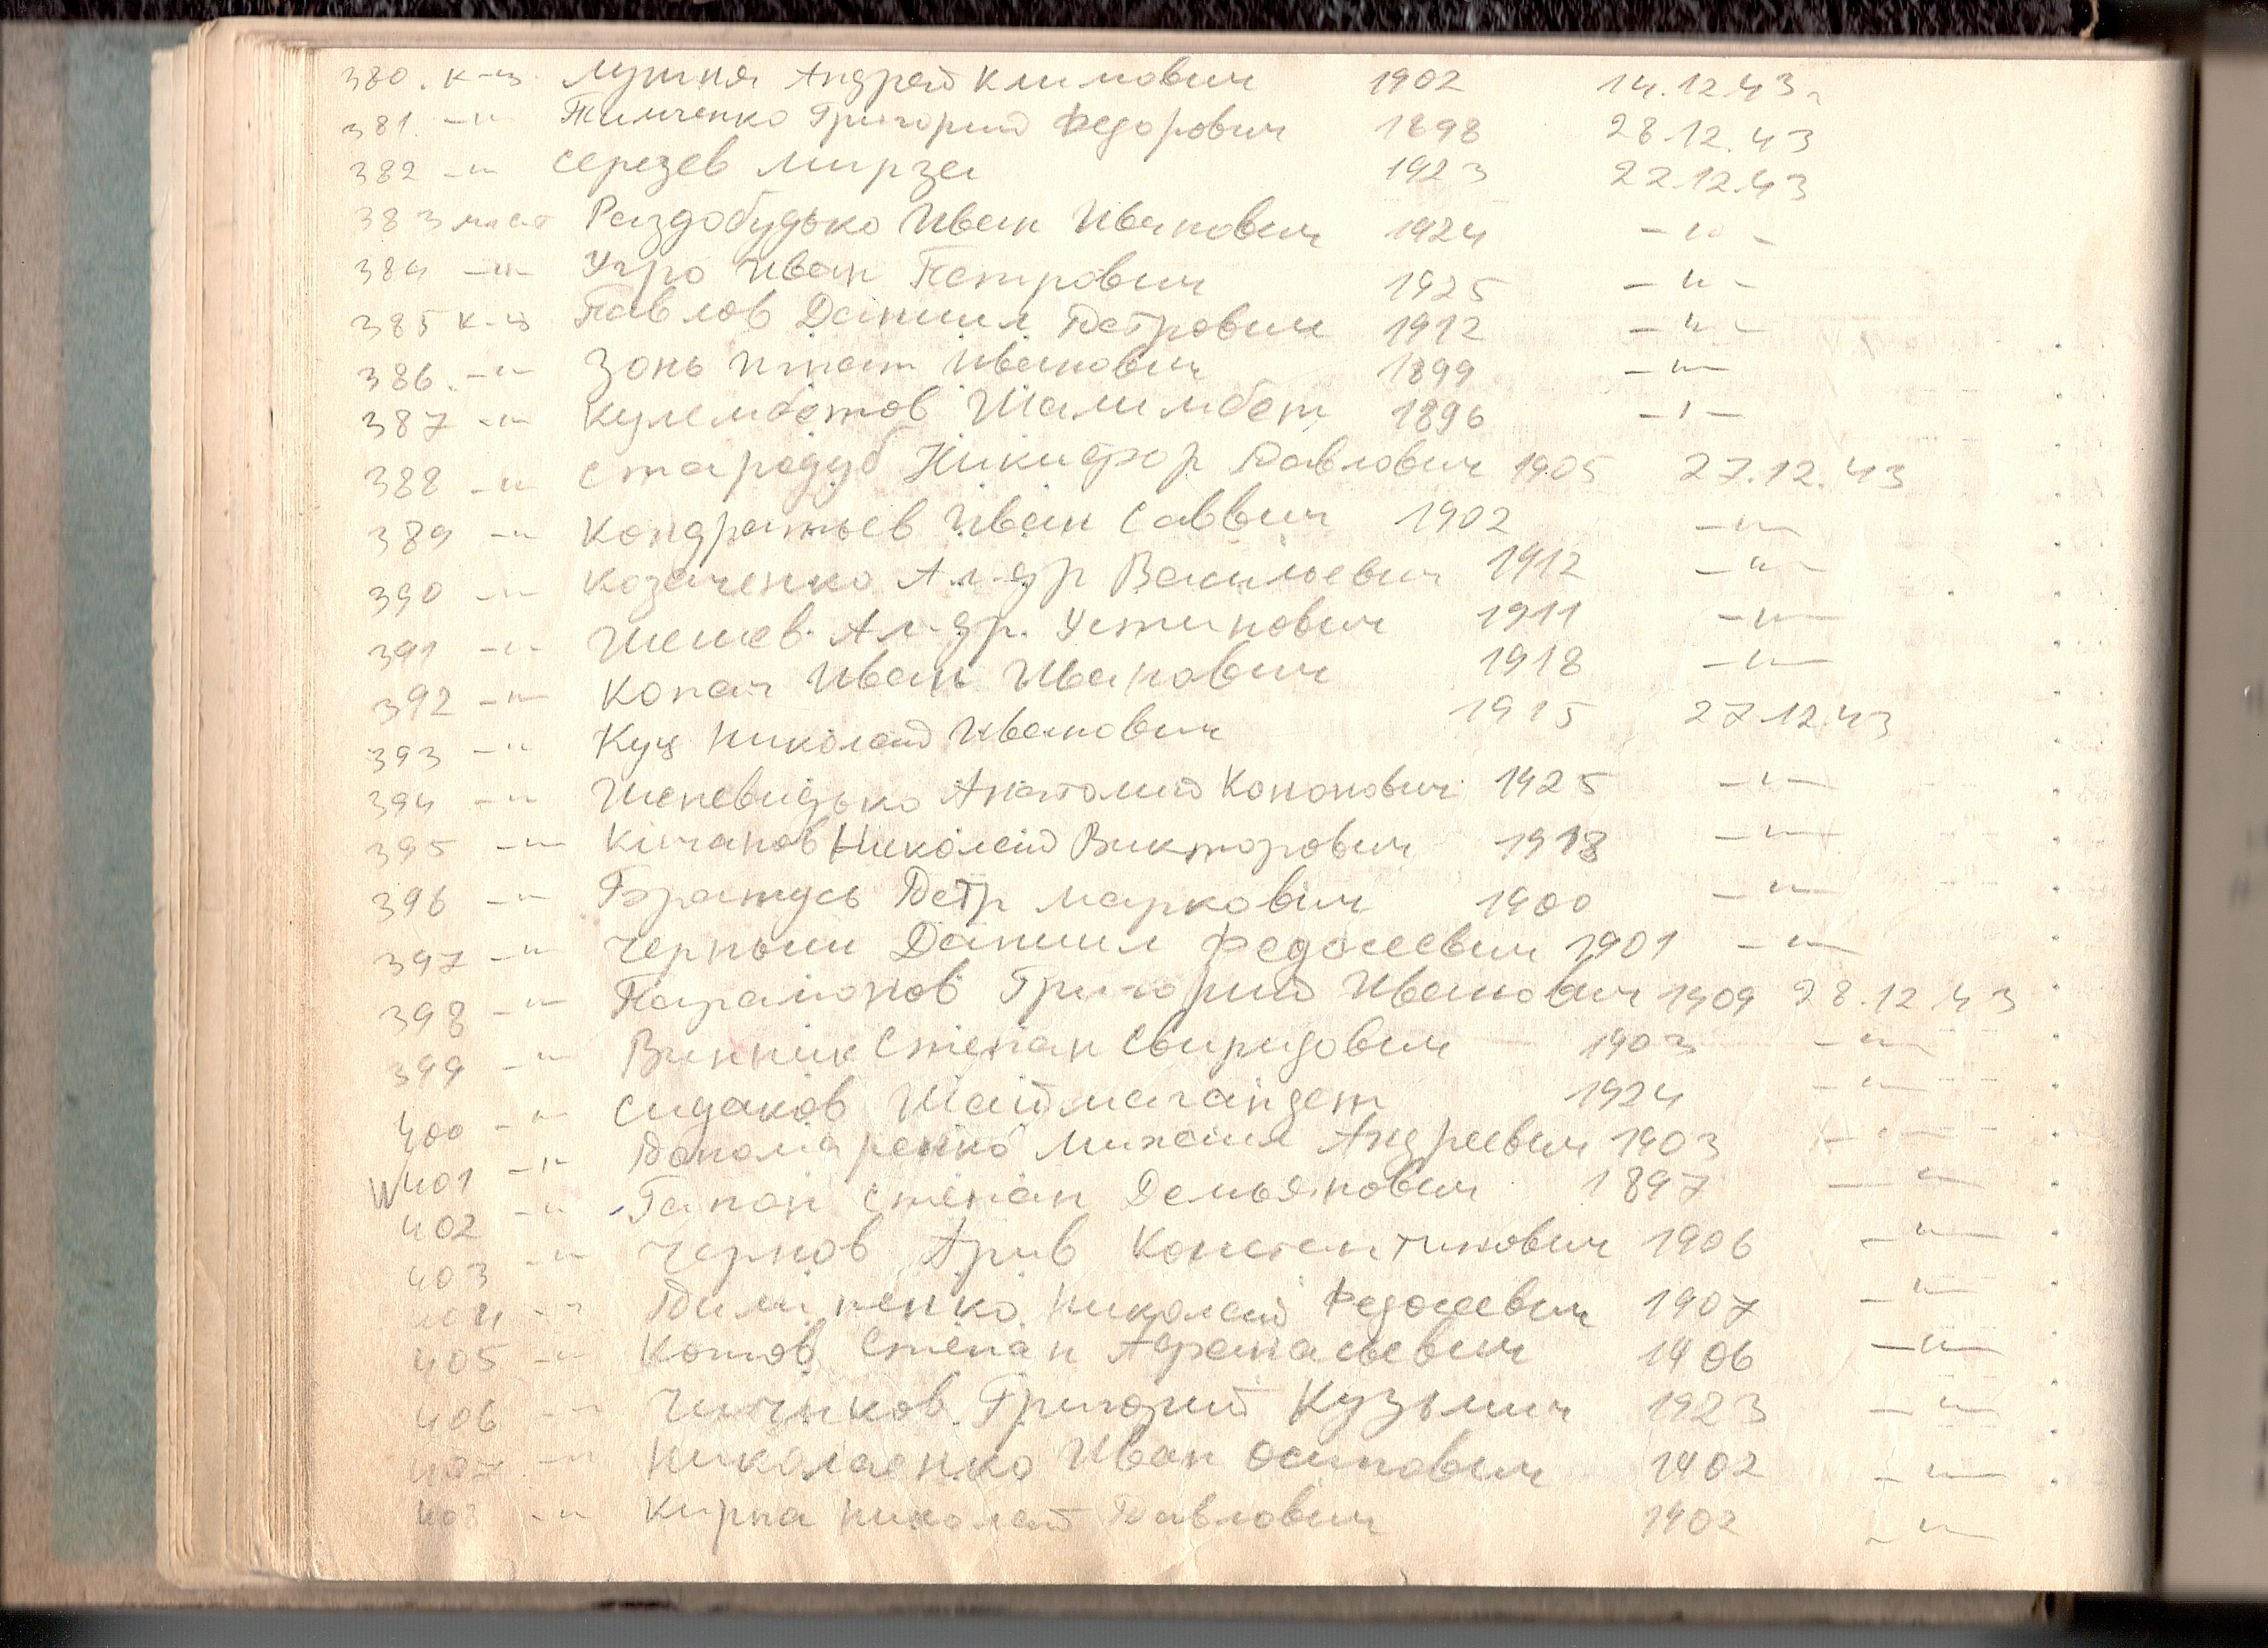 380. к-ц Лушня Андрей Климович 1902 14.12.43г
381. -"- Тимченко Григорий Федорович 1898 28.12.43
382 -"- Серезев Мирза 1923 22.12.43
383 Раздобудько Иван Иванович 1924 -"-
384 -"- Угро Иван Петрович 1925 -"-
385 к-ц Павлов Даниил Петрович 1912 -"-
386. -"- Зонь Игнат Иванович 1899 -"-
387 -"- Кулембетов Шалимбет 1896 -"-
388 -"- Стародуб Никифор Павлович 1905 27.12.43
389 -"- Кондратьев Иван Саввич 1902 -"-
390 -"- Козаченко Ал-др Васильевич 1912 -"-
391 -"- Ал-др. Устинович 1911 -"-
392 -"- Копач Иван Иванович 1918 -"-
393 -"- Куц Николай Иванович 1915 27.12.43
394 -"- Шепевидько Анатолий Кононович 1925 -"-
395 -"- Кичанов Николай Викторович 1918 -"-
396 -"- Братусь Петр Маркович 1900 -"-
397 -"- Черныш Даниил Федосеевич 1901 -"-
398 -"- Парамонов Григорий Иванович 1909 28.12.43
399 -"- Винник Степан Свиридович 1903 -"-
400 -"- Сидаков 1924 -"-
401 -"- Пономаренко Михаил Андреевич 1903 -"-
402 -"- Гапон Степан Демьянович 1897 -"-
403 -"- Чернов Константинович 1906 -"-
404 -"- Пилипенко Николай Федосеевич 1907 -"-
405 -"- Котов Степан Афанасьевич 1906 -"-
406 -"- Чичиков Григорий Кузьмич 1923 -"-
407 -"- Николаенко Иван Осипович 1902 -"-
408 -"- Кирпа Николай Павлович 1902 -"-